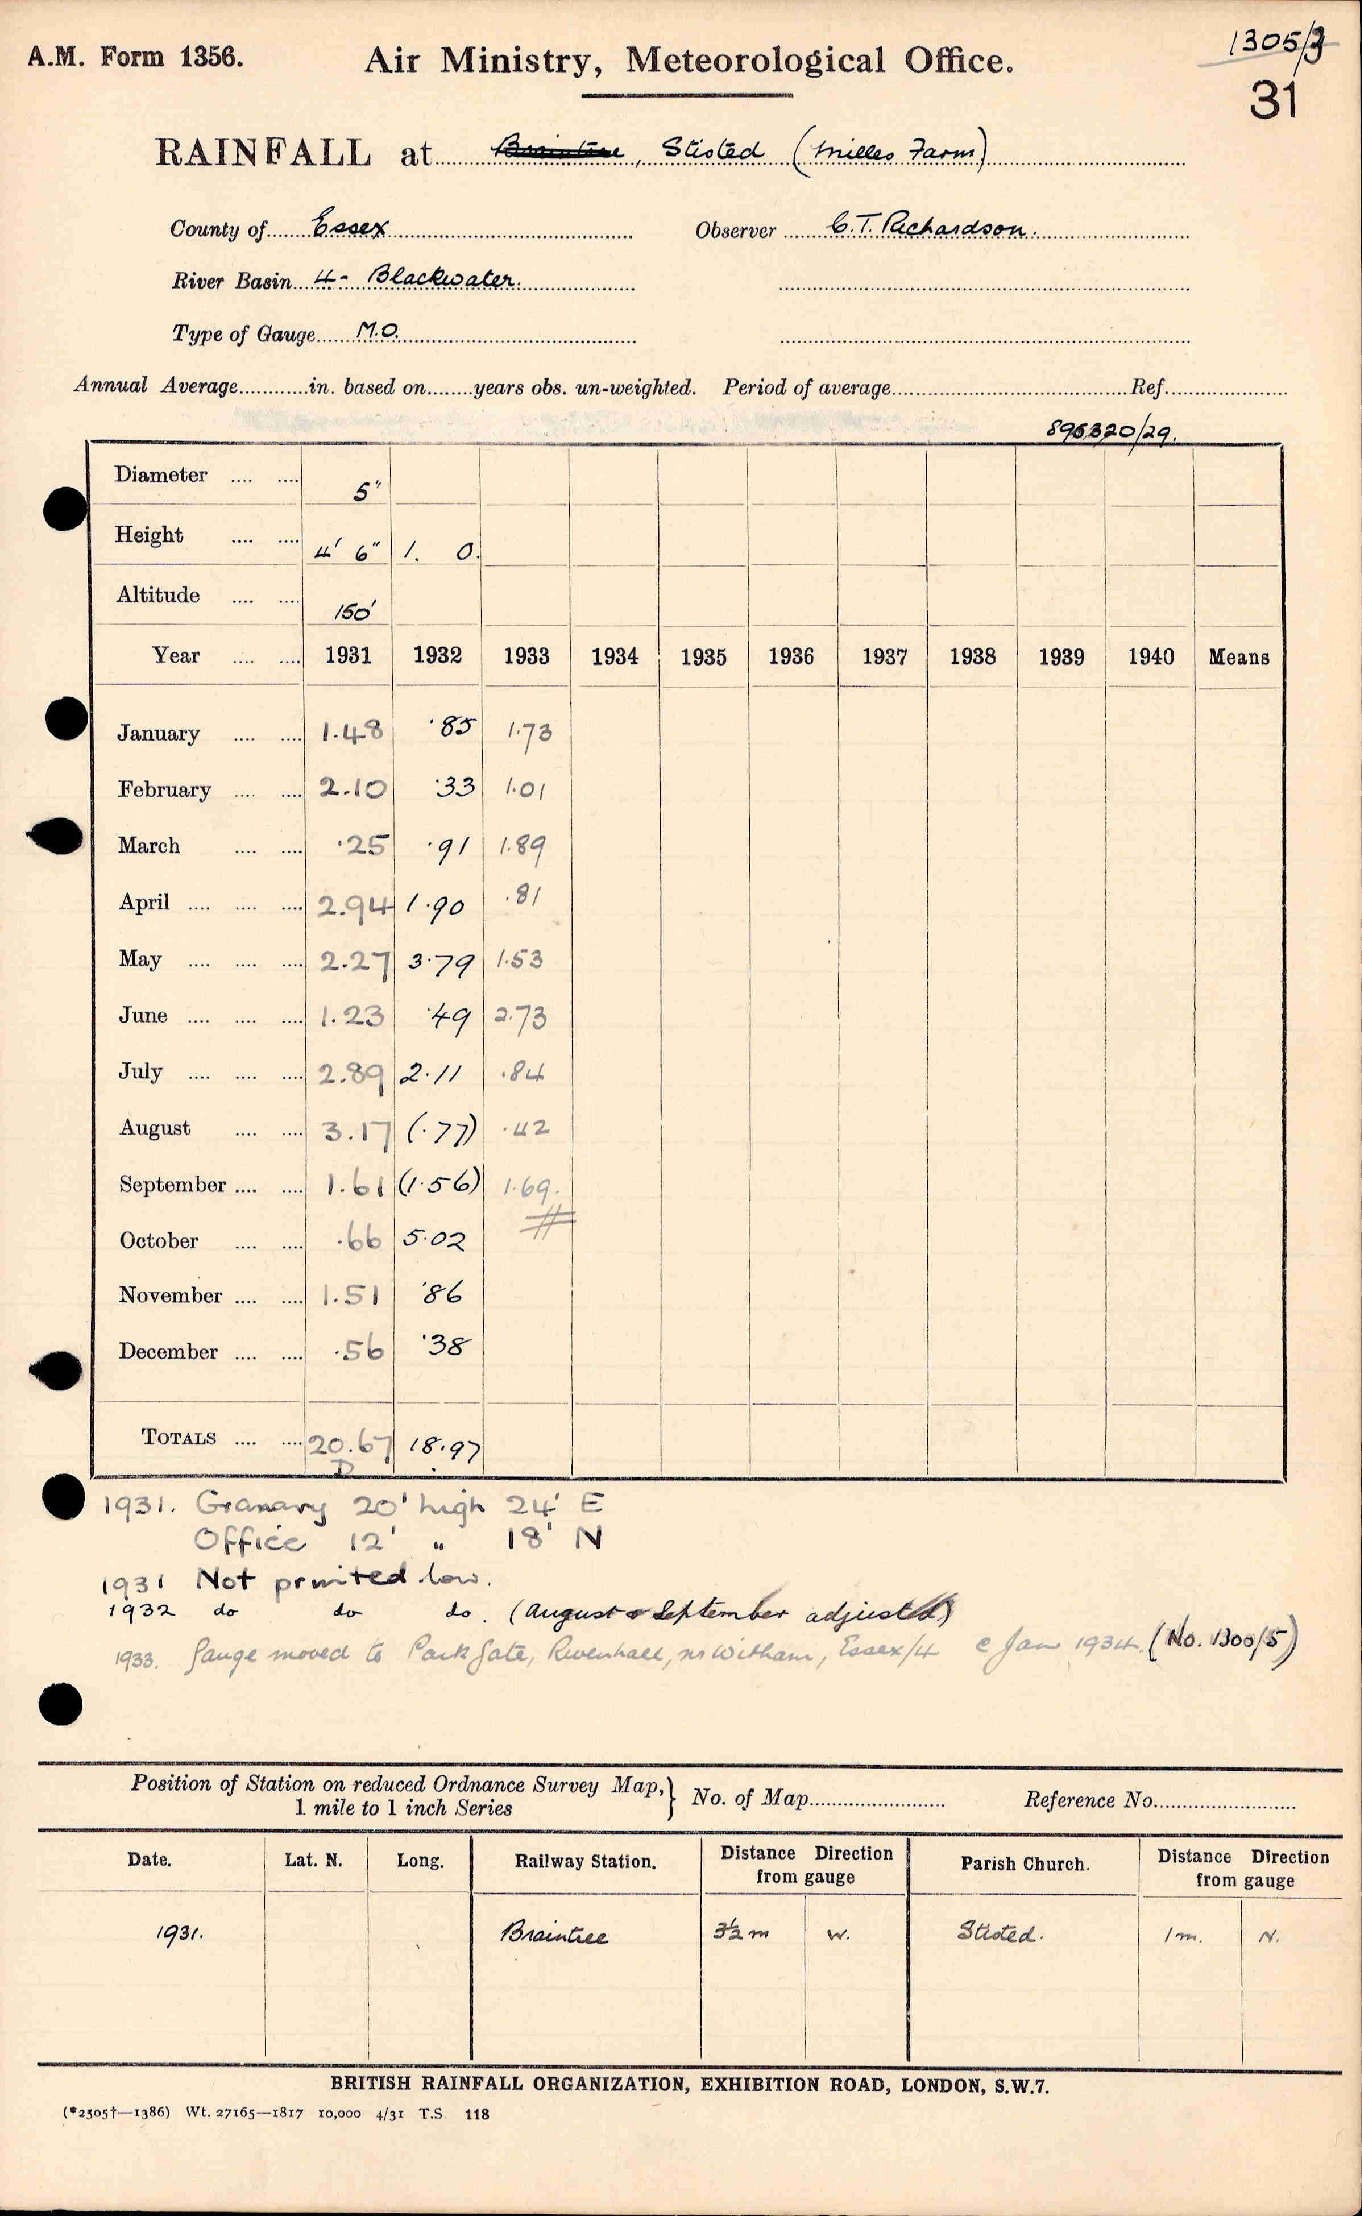 A.M. Form 1356.
Air Ministry, Meteorological Office.
1305/3
31
RAINFALL at Braintree, Stisted (Milles Farm)
County of Essex Observer C.T. Richardson.
River Basin 4 - Blackwater.
Type of Gauge M.O.
Annual Average in. based on years obs. un-weighted. Period of average Ref.
896320/29.
Diameter 5"
Height 4' 6" 1. 0.
Altitude 150'
Year 1931 1932 1933 1934 1935 1936 1937 1938 1939 1940 Means
January 1.48 .85 1.73
February 2.10 .33 1.01
March .25 .91 1.89
April 2.94 1.90 .81
May 2.27 3.79 1.53
June 1.23 .49 2.73
July 2.89 2.11 .84
August 3.17 (.77) .42
September 1.61 (1.56) 1.69.
October .66 5.02
November 1.51 .86
December .56 .38
TOTALS 20.67 18.97
D
1931. Granary 20' high 24' E
Office 12' " 18' N
1931 Not printed low.
1932 do do do. (August & September adjusted)
1933. Gauge moved to Park Gate, Rivenhall, nr Witham, Essex/4 c Jan 1934. (No. 1300/5)
Position of Station on reduced Ordnance Survey Map, 1 mile to 1 inch Series } No. of Map Reference No.
Date. Lat. N. Long. Railway Station. Distance Direction from gauge Parish Church. Distance Direction from gauge
1931. Braintree 3½ m W. Stisted. 1 m. N.
BRITISH RAINFALL ORGANIZATION, EXHIBITION ROAD, LONDON, S.W.7.
(*2505†—1386) Wt. 27165—1817 10,000 4/31 T.S. 118